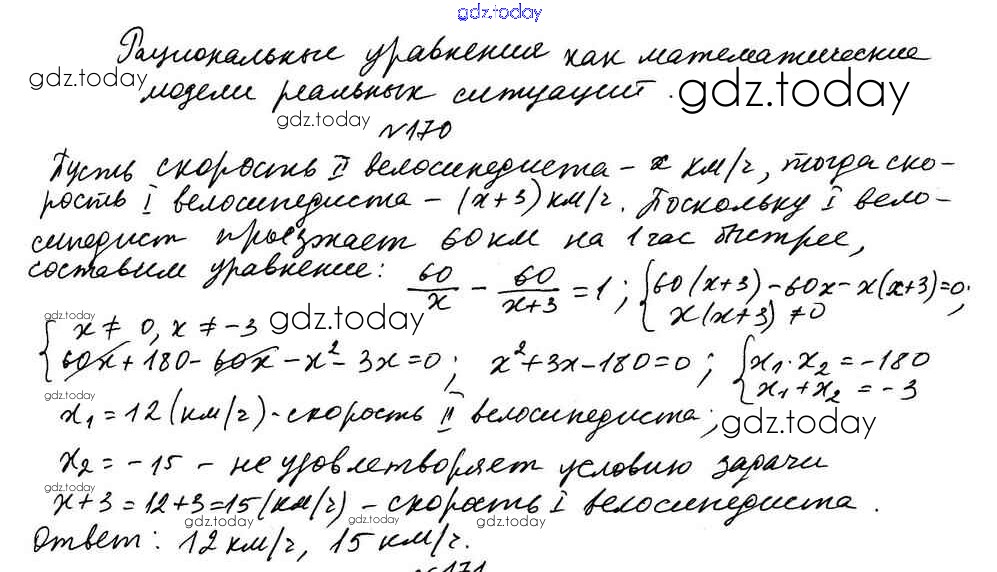 gdz.today
Рациональные уравнения как математические
gdz.today
модели реальных ситуаций.
gdz.today
gdz.today
№170
Пусть скорость II велосипедиста – x км/ч, тогда ско-
рость I велосипедиста – (x+3) км/ч. Поскольку I вело-
сипедист проезжает 60 км на 1 час быстрее,
составим уравнение: 60/x − 60/(x+3) = 1; {60(x+3) − 60x − x(x+3) = 0;
x(x+3) ≠ 0
gdz.today
{x ≠ 0, x ≠ −3
gdz.today
60x + 180 − 60x − x² − 3x = 0; x² + 3x − 180 = 0; {x₁·x₂ = −180
x₁ + x₂ = −3
gdz.today
x₁ = 12 (км/ч) - скорость II велосипедиста;
gdz.today
x₂ = −15 – не удовлетворяет условию задачи
gdz.today
x+3 = 12+3 = 15 (км/ч) – скорость I велосипедиста.
gdz.today gdz.today gdz.today
Ответ: 12 км/ч, 15 км/ч.
№171